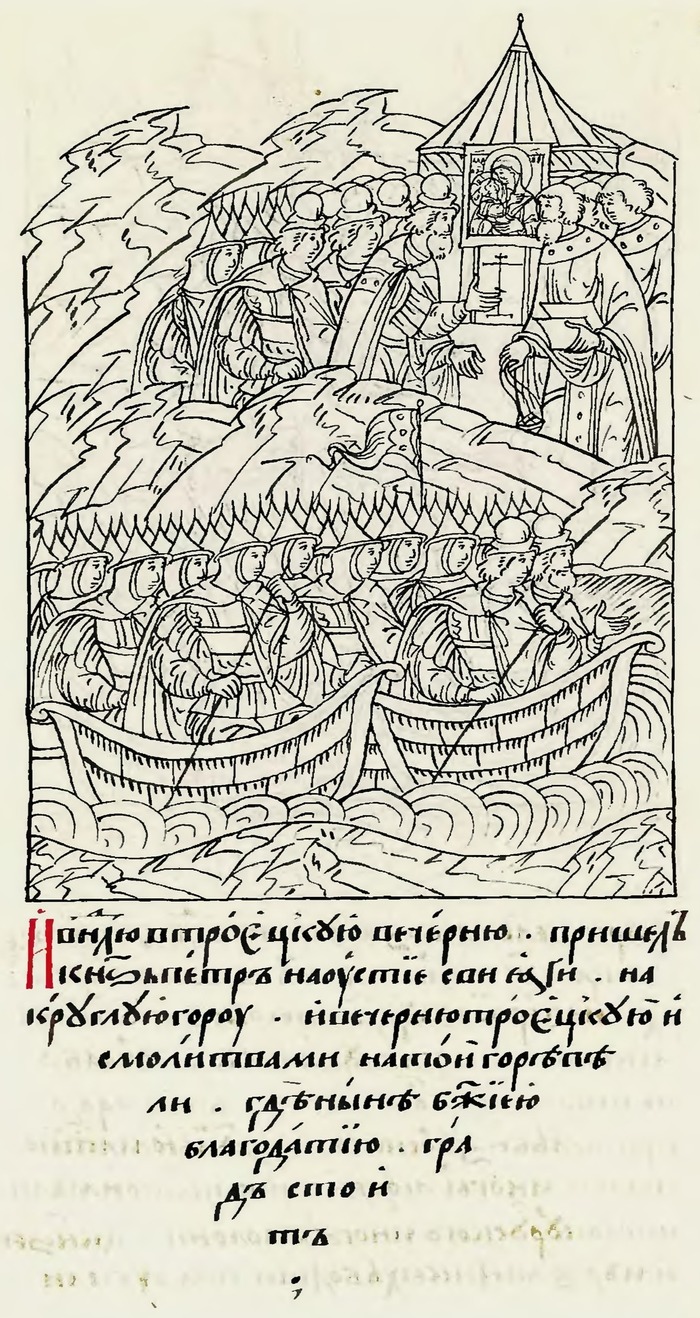 И внл҃ю втрѻ́ецкꙋю вече́рню . прише́лъ
кн҃ѕь пе́тръ наоу́стїе свиѧ́ги . на
крꙋ́глꙋю горо́у . и҆ вечерню трѻ́ецкꙋю и҆
смоли́твами нато́и горѣ пѣ
ли . гдѣ ны́нѣ бж҃їею
благода́тїю . гра́
дъ стои
тъ
;